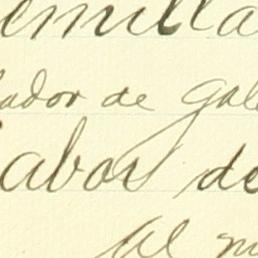 emilla
ador de Gal
Labor de
Al m